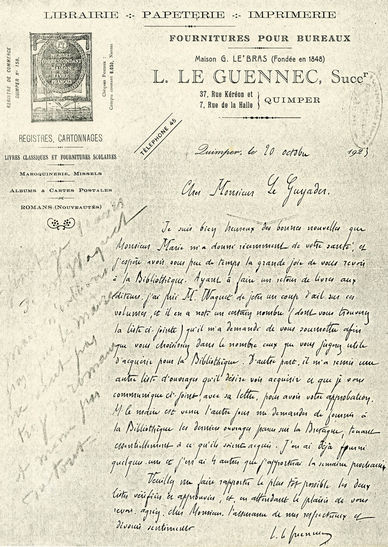 LIBRAIRIE - PAPETERIE - IMPRIMERIE
FOURNITURES POUR BUREAUX
Maison G. LE BRAS (Fondée en 1848)
L. LE GUENNEC, Succr
37, Rue Kéréon et
7, Rue de la Halle
QUIMPER
REGISTRE DE COMMERCE
QUIMPER Nº 158.
TÉLÉPHONE 45
REGISTRES, CARTONNAGES
LIVRES CLASSIQUES ET FOURNITURES SCOLAIRES
MAROQUINERIE, MISSELS
ALBUMS & CARTES POSTALES
ROMANS (NOUVEAUTÉS)
Quimper, le 20 octobre 1923
Cher Monsieur Le Guyader,
Je suis bien heureux des bonnes nouvelles que
Monsieur Marie m'a donné récemment de votre santé, et
j'espère avoir sous peu de temps la grande joie de vous revoir
à la Bibliothèque. Ayant à faire un retour de livres aux
éditeurs j'ai prié M. Waquet de jeter un coup d'œil sur ces
volumes, et il en a noté un certain nombre (dont vous trouverez
la liste ci-jointe) qu'il m'a demandé de vous soumettre afin
que vous choisissiez dans le nombre ceux que vous jugerez utile
d'acquérir pour la Bibliothèque. D'autre part, il m'a remis une
autre liste d'ouvrages qu'il désire voir acquérir et que je vous
communique ci-joint avec sa lettre, pour avoir votre approbation.
M. le maire est venu l'autre jour me demander de fournir à
la Bibliothèque les derniers ouvrages parus sur la Bretagne, tenant
essentiellement à ce qu'ils soient acquis. J'en ai déjà fourni
quelques uns et j'en ai 4 autres que j'apporterai la semaine prochaine.
Veuillez me faire rapporter le plus tôt possible les deux
listes vérifiées & approuvées, et en attendant le plaisir de vous
revoir, agréez, cher Monsieur, l'assurance de mes respectueux et
dévoués sentiments
L. Le Guennec